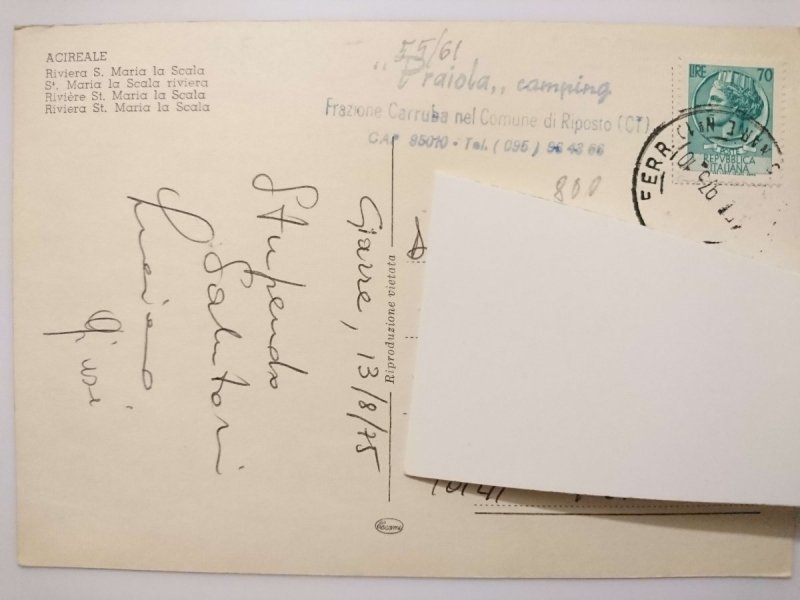 ACIREALE
Riviera S. Maria la Scala
St. Maria la Scala riviera
Rivière St. Maria la Scala
Riviera St. Maria la Scala
55/61
"Praiola,, camping
Frazione Carruba nel Comune di Riposto (CT)
CAP 95010 - Tel. (095) 96 43 66
800
LIRE 70
POSTE
REPVBBLICA
ITALIANA
FERR
Giarre, 13/8/75
Stupendo
Salutoni
Luciano
Giusi
Riproduzione vietata
10141